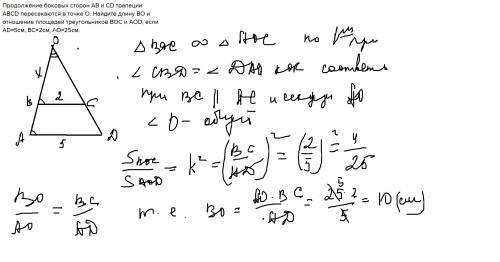 Продолжение боковых сторон AB и CD трапеции
ABCD пересекаются в точке О. Найдите длину ВО и
отношение площадей треугольников BOC и AOD, если
AD=5см, BC=2см, АО=25см.
O
x
B 2 C
A 5 D
△ BOC ∞ △ AOC по
∠ CBD = ∠ DAO как соответ
при BC || AC и секущ AO
∠ O - общий
S BOC / S AOD = k² = (BC / AD)² = (2 / 5)² = 4 / 25
BO / AO = BC / AD т.е. BO = AO · BC / AD = 25 · 2 / 5 = 10 (см)
5